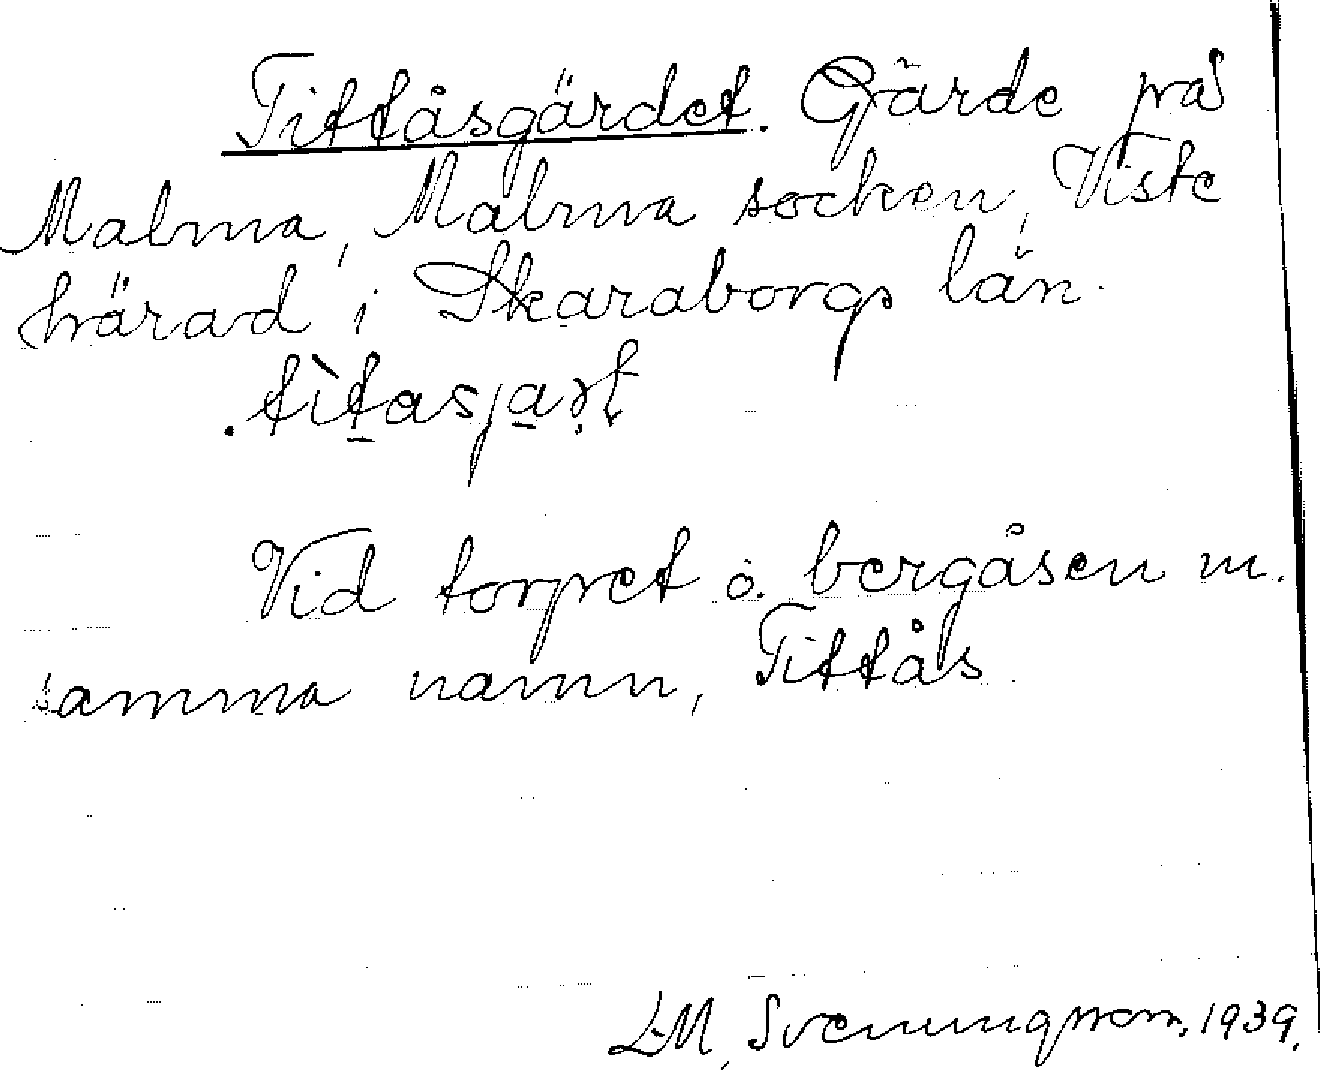 Tittåsgärdet. Gärde på
Malma, Malma socken, Viste
härad i Skaraborgs län.
. tìt̠asja̠ṣt
Vid torpet o. bergåsen m.
samma namn, Tittås
LM, Svenungsson. 1939.